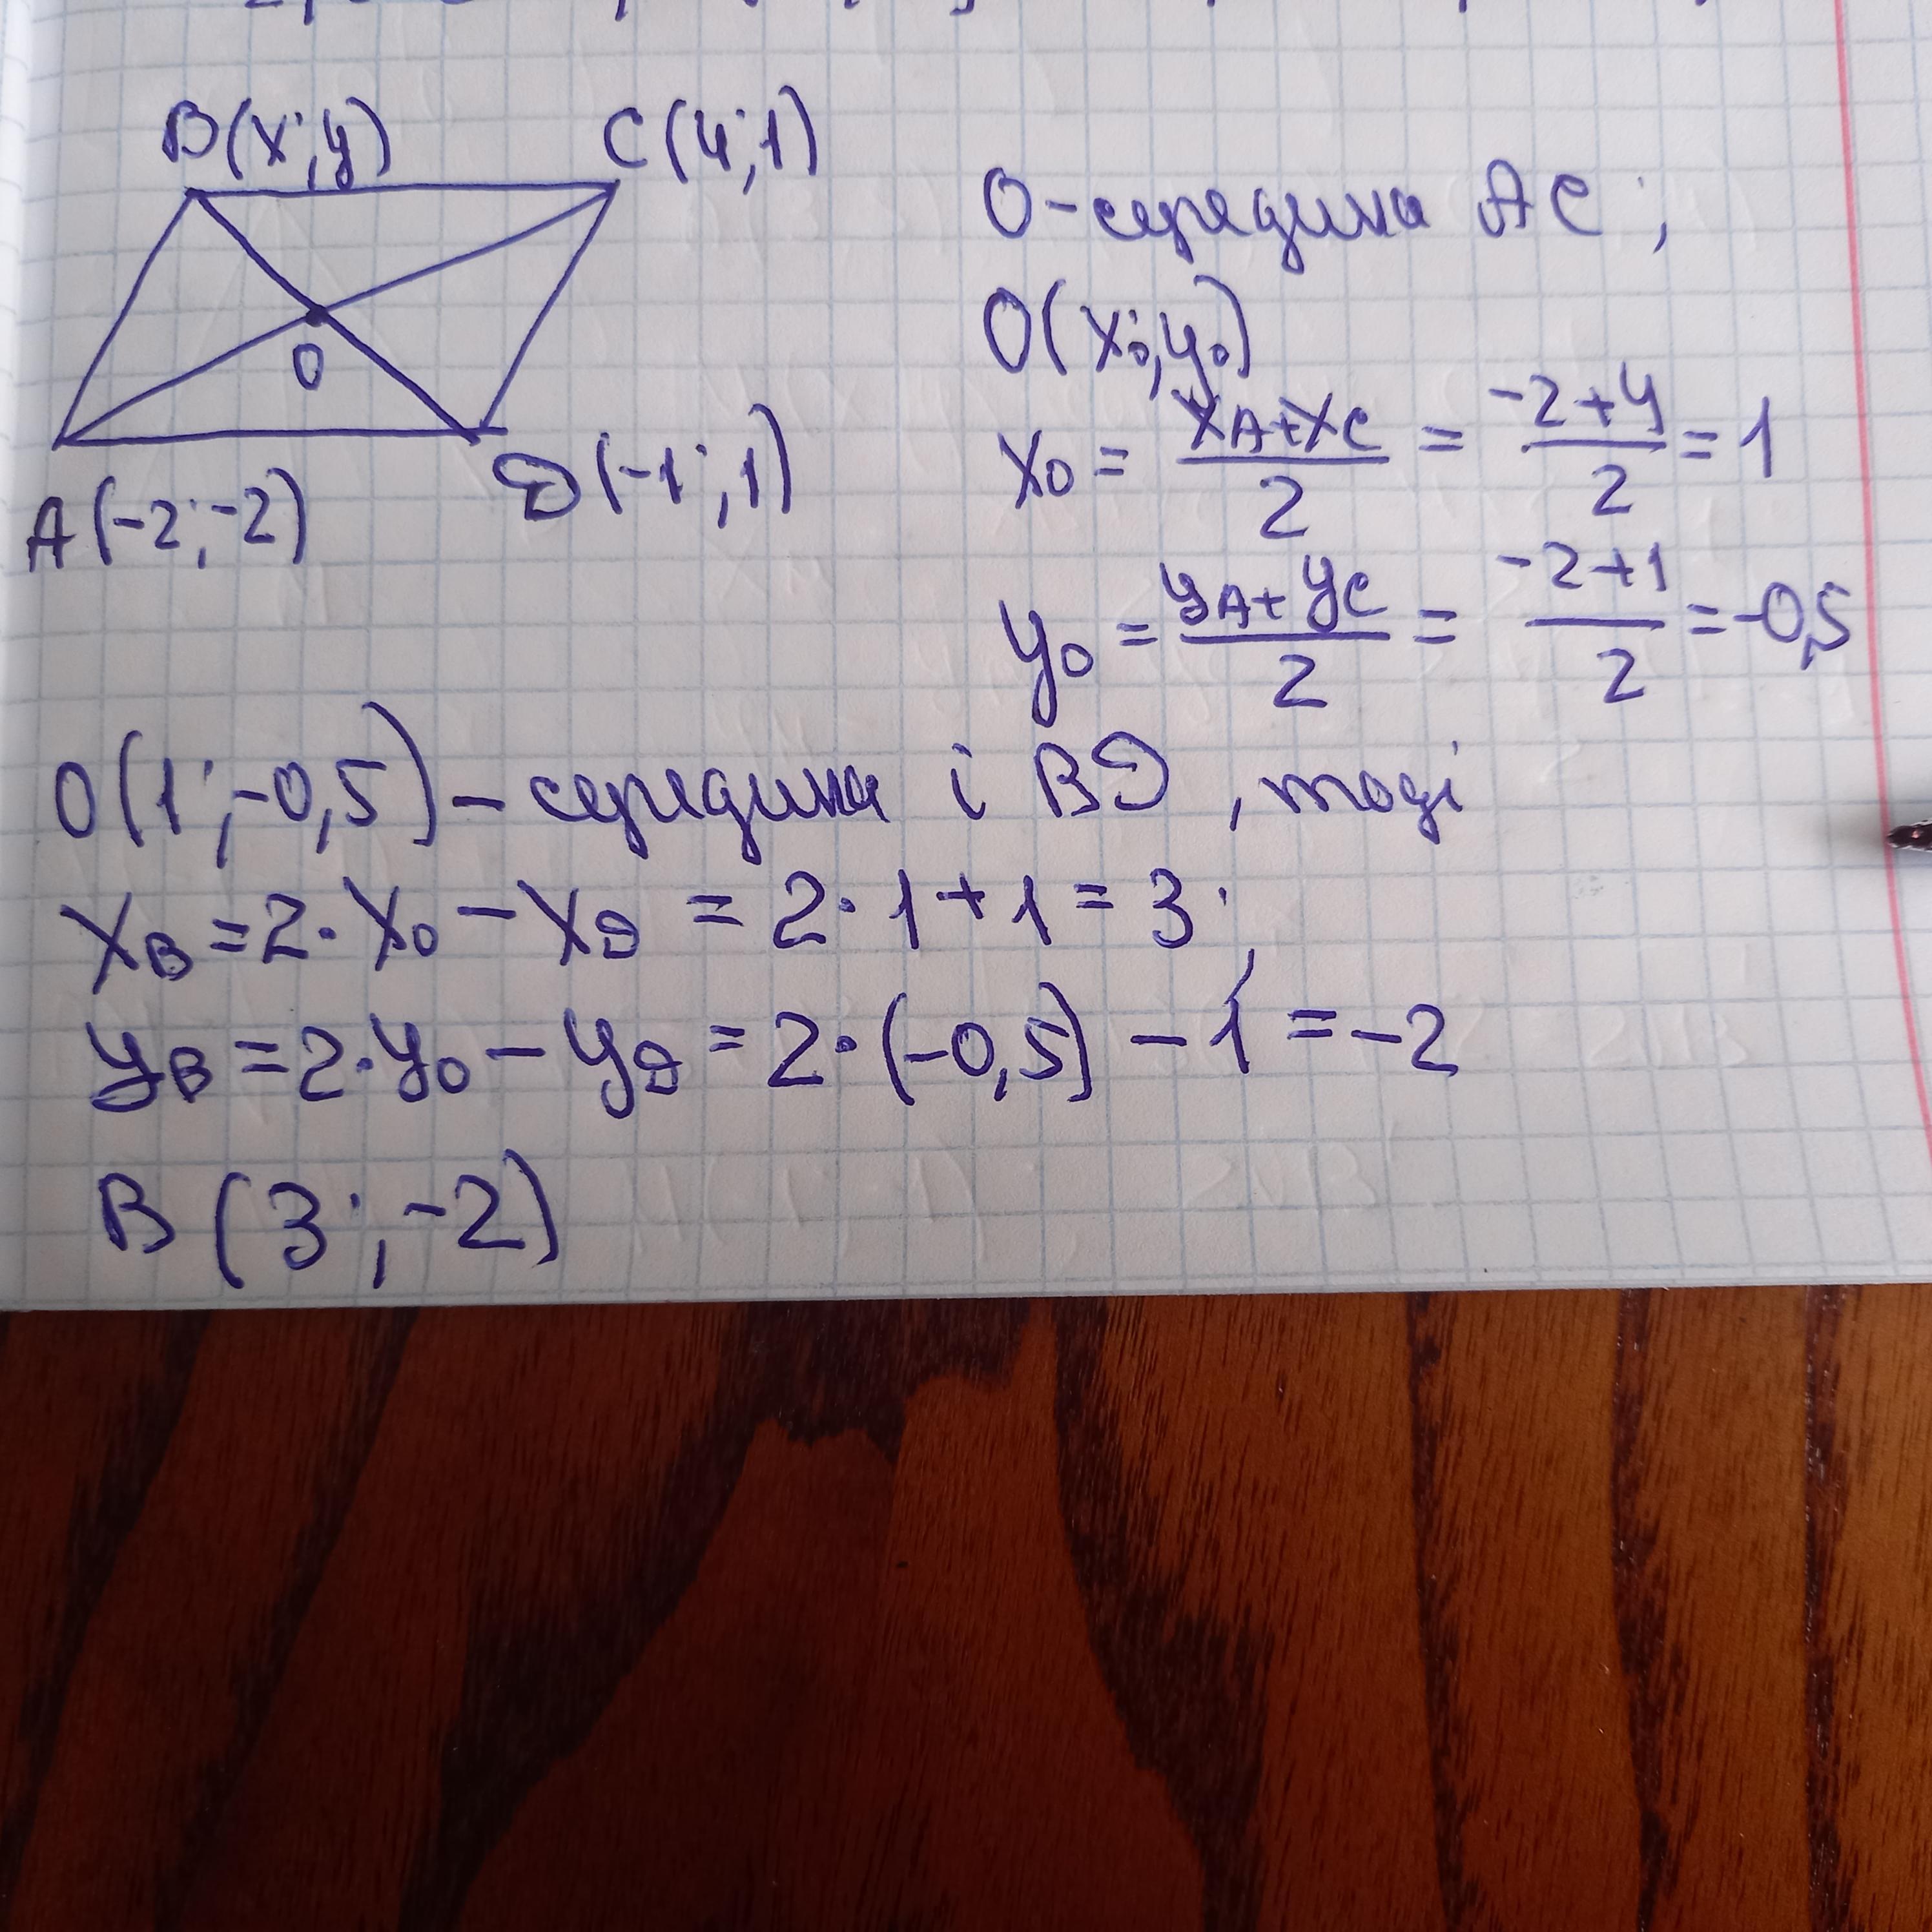 B(x;y) C(4;1)
O
A(-2;-2) D(-1;1)
O-середина AC;
O(x₀;y₀)
x₀ = (x_A+x_C)/2 = (-2+4)/2 = 1
y₀ = (y_A+y_C)/2 = (-2+1)/2 = -0,5
O(1;-0,5) – середина і BD, тоді
x_B = 2·x₀ – x_D = 2·1+1 = 3;
y_B = 2·y₀ – y_D = 2·(-0,5) – 1 = -2
B(3;-2)